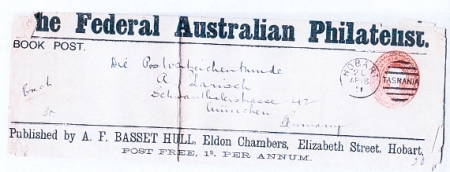 he Federal Australian Philatelist.
BOOK POST.
Die Postwertzeichenkunde
A. Larisch
Schwanthalerstrasse 42
München
Germany
HOBART
AP
TASMANIA
Published by A. F. BASSET HULL, Eldon Chambers, Elizabeth Street, Hobart,
POST FREE, 1s. PER ANNUM.